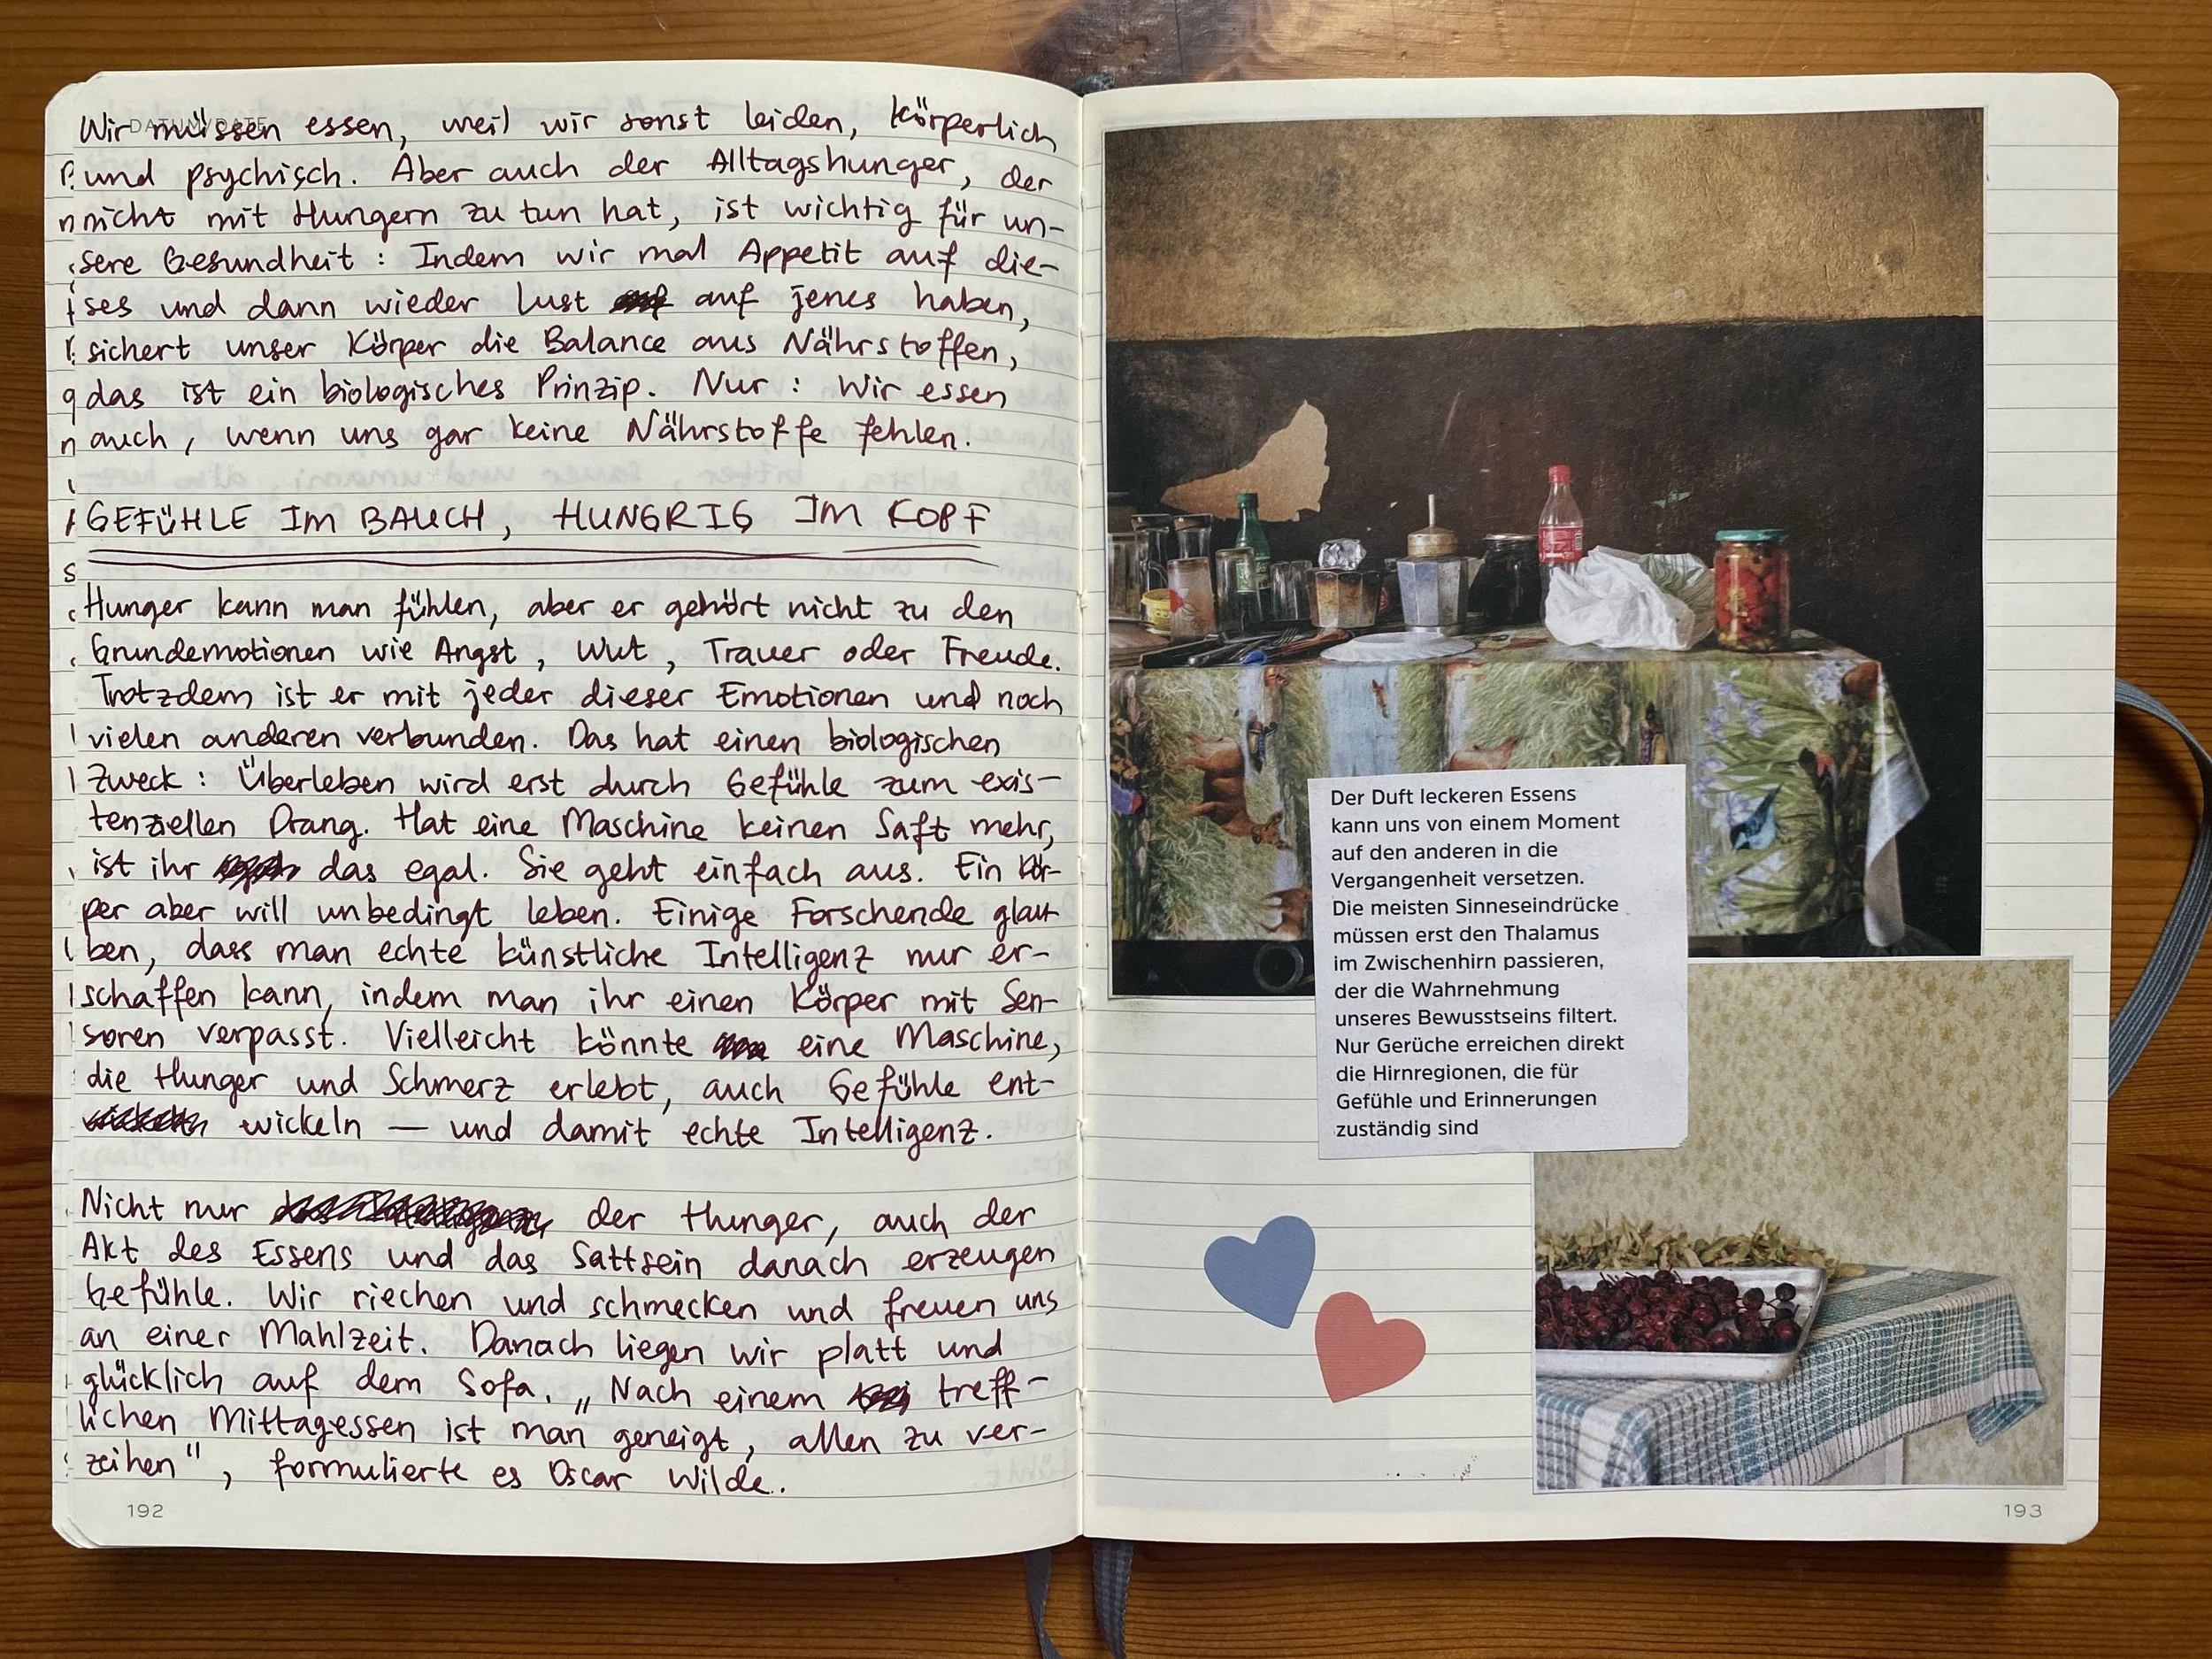 DATUM/DATE
Wir müssen essen, weil wir sonst leiden, körperlich
und psychisch. Aber auch der Alltagshunger, der
nicht mit Hungern zu tun hat, ist wichtig für un-
sere Gesundheit: Indem wir mal Appetit auf die-
ses und dann wieder Lust auf jenes haben,
sichert unser Körper die Balance aus Nährstoffen,
das ist ein biologisches Prinzip. Nur: Wir essen
auch, wenn uns gar keine Nährstoffe fehlen.
GEFÜHLE IM BAUCH, HUNGRIG IM KOPF
Hunger kann man fühlen, aber er gehört nicht zu den
Grundemotionen wie Angst, Wut, Trauer oder Freude.
Trotzdem ist er mit jeder dieser Emotionen und noch
vielen anderen verbunden. Das hat einen biologischen
Zweck: Überleben wird erst durch Gefühle zum exis-
tenziellen Drang. Hat eine Maschine keinen Saft mehr,
ist ihr das egal. Sie geht einfach aus. Ein Kör-
per aber will unbedingt leben. Einige Forschende glau-
ben, dass man echte künstliche Intelligenz nur er-
schaffen kann, indem man ihr einen Körper mit Sen-
soren verpasst. Vielleicht könnte eine Maschine,
die Hunger und Schmerz erlebt, auch Gefühle ent-
wickeln — und damit echte Intelligenz.
Nicht nur der Hunger, auch der
Akt des Essens und das Sattsein danach erzeugen
Gefühle. Wir riechen und schmecken und freuen uns
an einer Mahlzeit. Danach liegen wir platt und
glücklich auf dem Sofa. „Nach einem treff-
lichen Mittagessen ist man geneigt, allen zu ver-
zeihen", formulierte es Oscar Wilde.
192
Der Duft leckeren Essens
kann uns von einem Moment
auf den anderen in die
Vergangenheit versetzen.
Die meisten Sinneseindrücke
müssen erst den Thalamus
im Zwischenhirn passieren,
der die Wahrnehmung
unseres Bewusstseins filtert.
Nur Gerüche erreichen direkt
die Hirnregionen, die für
Gefühle und Erinnerungen
zuständig sind
193